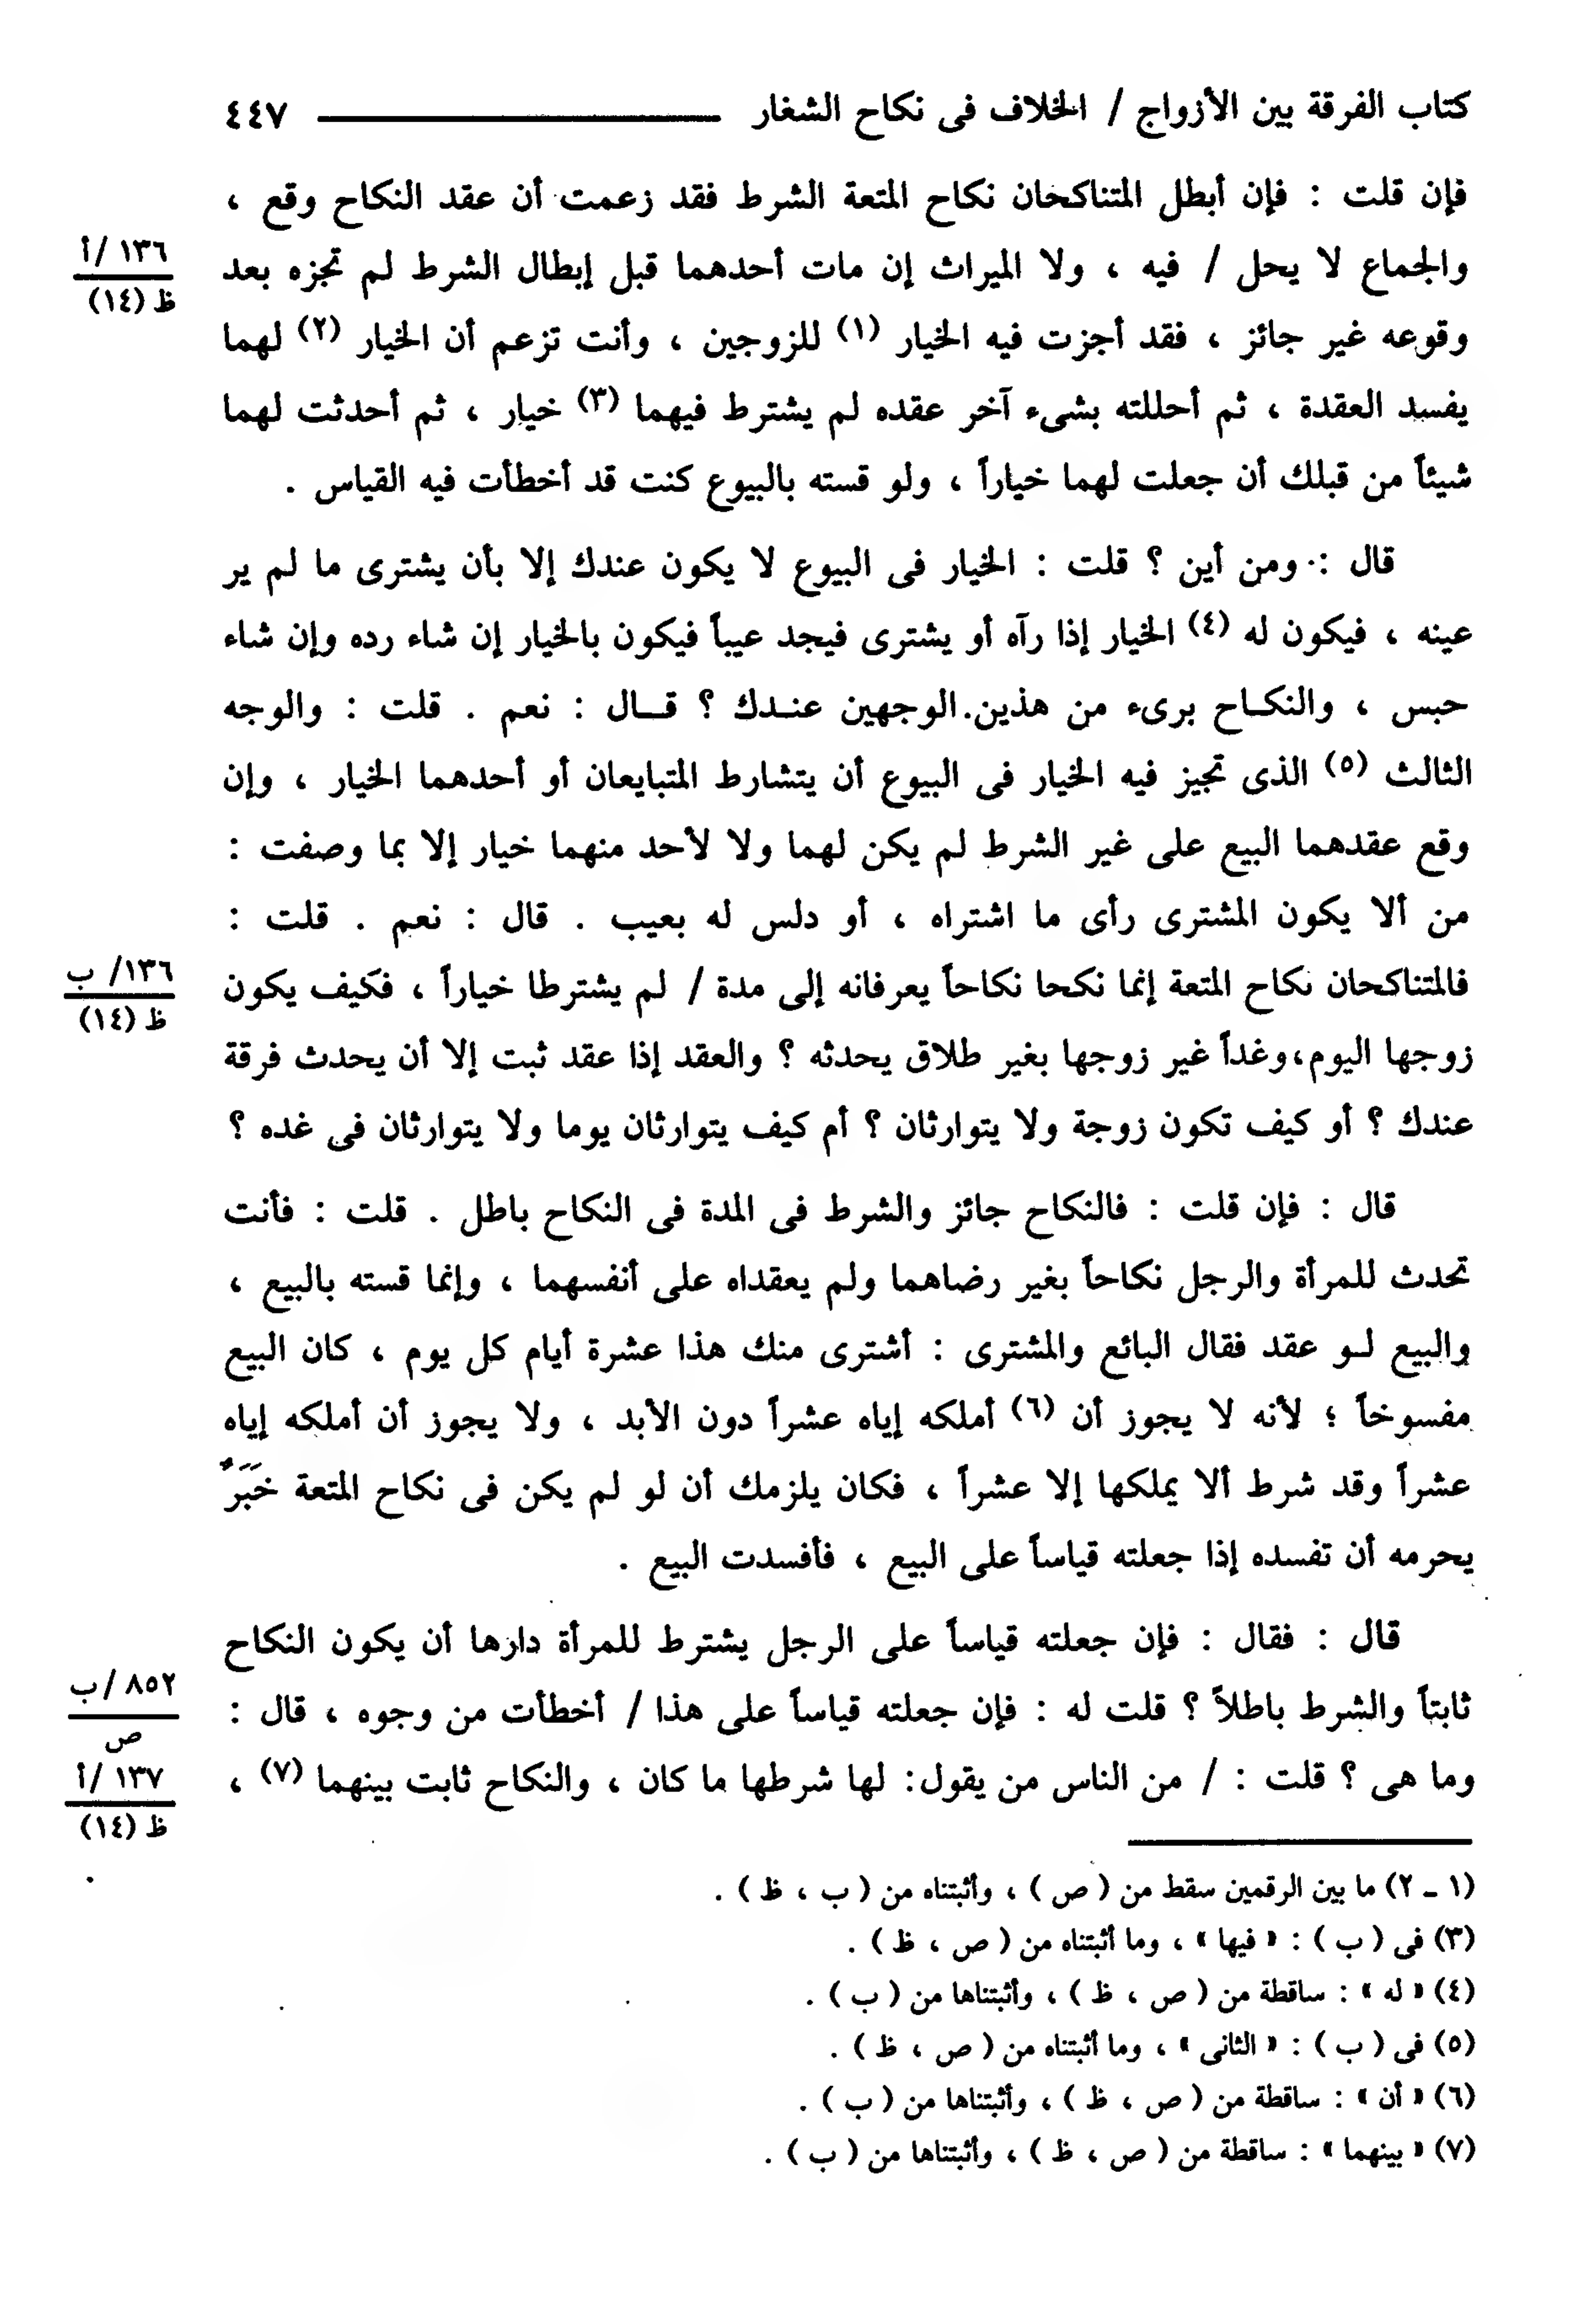 كتاب الفرقة بين الأزواج / الخلاف فى نكاح الشغار ٤٤٧
فإن قلت : فإن أبطل المتناكحان نكاح المتعة الشرط فقد زعمت أن عقد النكاح وقع ،
١٣٦ /أ
والجماع لا يحل / فيه ، ولا الميراث إن مات أحدهما قبل إبطال الشرط لم تجزه بعد
ظ (١٤)
وقوعه غير جائز ، فقد أجزت فيه الخيار (١) للزوجين ، وأنت تزعم أن الخيار (٢) لهما
يفسد العقدة ، ثم أحللته بشىء آخر عقده لم يشترط فيهما (٣) خيار ، ثم أحدثت لهما
شيئاً من قبلك أن جعلت لهما خياراً ، ولو قسته بالبيوع كنت قد أخطأت فيه القياس .
قال : ومن أين ؟ قلت : الخيار فى البيوع لا يكون عندك إلا بأن يشترى ما لم ير
عينه ، فيكون له (٤) الخيار إذا رآه أو يشترى فيجد عيباً فيكون بالخيار إن شاء رده وإن شاء
حبس ، والنكـاح برىء من هذين الوجهين عنـدك ؟ قـال : نعم . قلت : والوجه
الثالث (٥) الذى تجيز فيه الخيار فى البيوع أن يتشارط المتبايعان أو أحدهما الخيار ، وإن
وقع عقدهما البيع على غير الشرط لم يكن لهما ولا لأحد منهما خيار إلا بما وصفت :
من ألا يكون المشترى رأى ما اشتراه ، أو دلس له بعيب . قال : نعم . قلت :
١٣٦/ ب
فالمتناكحان نكاح المتعة إنما نكحا نكاحاً يعرفانه إلى مدة / لم يشترطا خياراً ، فكيف يكون
ظ (١٤)
زوجها اليوم،وغداً غير زوجها بغير طلاق يحدثه ؟ والعقد إذا عقد ثبت إلا أن يحدث فرقة
عندك ؟ أو كيف تكون زوجة ولا يتوارثان ؟ أم كيف يتوارثان يوما ولا يتوارثان فى غده ؟
قال : فإن قلت : فالنكاح جائز والشرط فى المدة فى النكاح باطل . قلت : فأنت
تحدث للمرأة والرجل نكاحاً بغير رضاهما ولم يعقداه على أنفسهما ، وإنما قسته بالبيع ،
والبيع لـو عقد فقال البائع والمشترى : أشترى منك هذا عشرة أيام كل يوم ، كان البيع
مفسوخاً ؛ لأنه لا يجوز أن (٦) أملكه إياه عشراً دون الأبد ، ولا يجوز أن أملكه إياه
عشراً وقد شرط ألا يملكها إلا عشراً ، فكان يلزمك أن لو لم يكن فى نكاح المتعة خَبَرٌ
يحرمه أن تفسده إذا جعلته قياساً على البيع ، فأفسدت البيع .
قال : فقال : فإن جعلته قياساً على الرجل يشترط للمرأة دارها أن يكون النكاح
٨٥٢ /ب
ثابتاً والشرط باطلاً ؟ قلت له : فإن جعلته قياساً على هذا / أخطأت من وجوه ، قال :
ص
١٣٧ /أ
وما هى ؟ قلت : / من الناس من يقول: لها شرطها ما كان ، والنكاح ثابت بينهما (٧) ،
ظ (١٤)
(١ - ٢) ما بين الرقمين سقط من ( ص ) ، وأثبتناه من ( ب ، ظ ) .
(٣) فى ( ب ) : « فيها » ، وما أثبتناه من ( ص ، ظ ) .
(٤) « له » : ساقطة من ( ص ، ظ ) ، وأثبتناها من ( ب ) .
(٥) فى ( ب ) : « الثانى » ، وما أثبتناه من ( ص ، ظ ) .
(٦) « أن » : ساقطة من ( ص ، ظ ) ، وأثبتناها من ( ب ) .
(٧) « بينهما » : ساقطة من ( ص ، ظ ) ، وأثبتناها من ( ب ) .